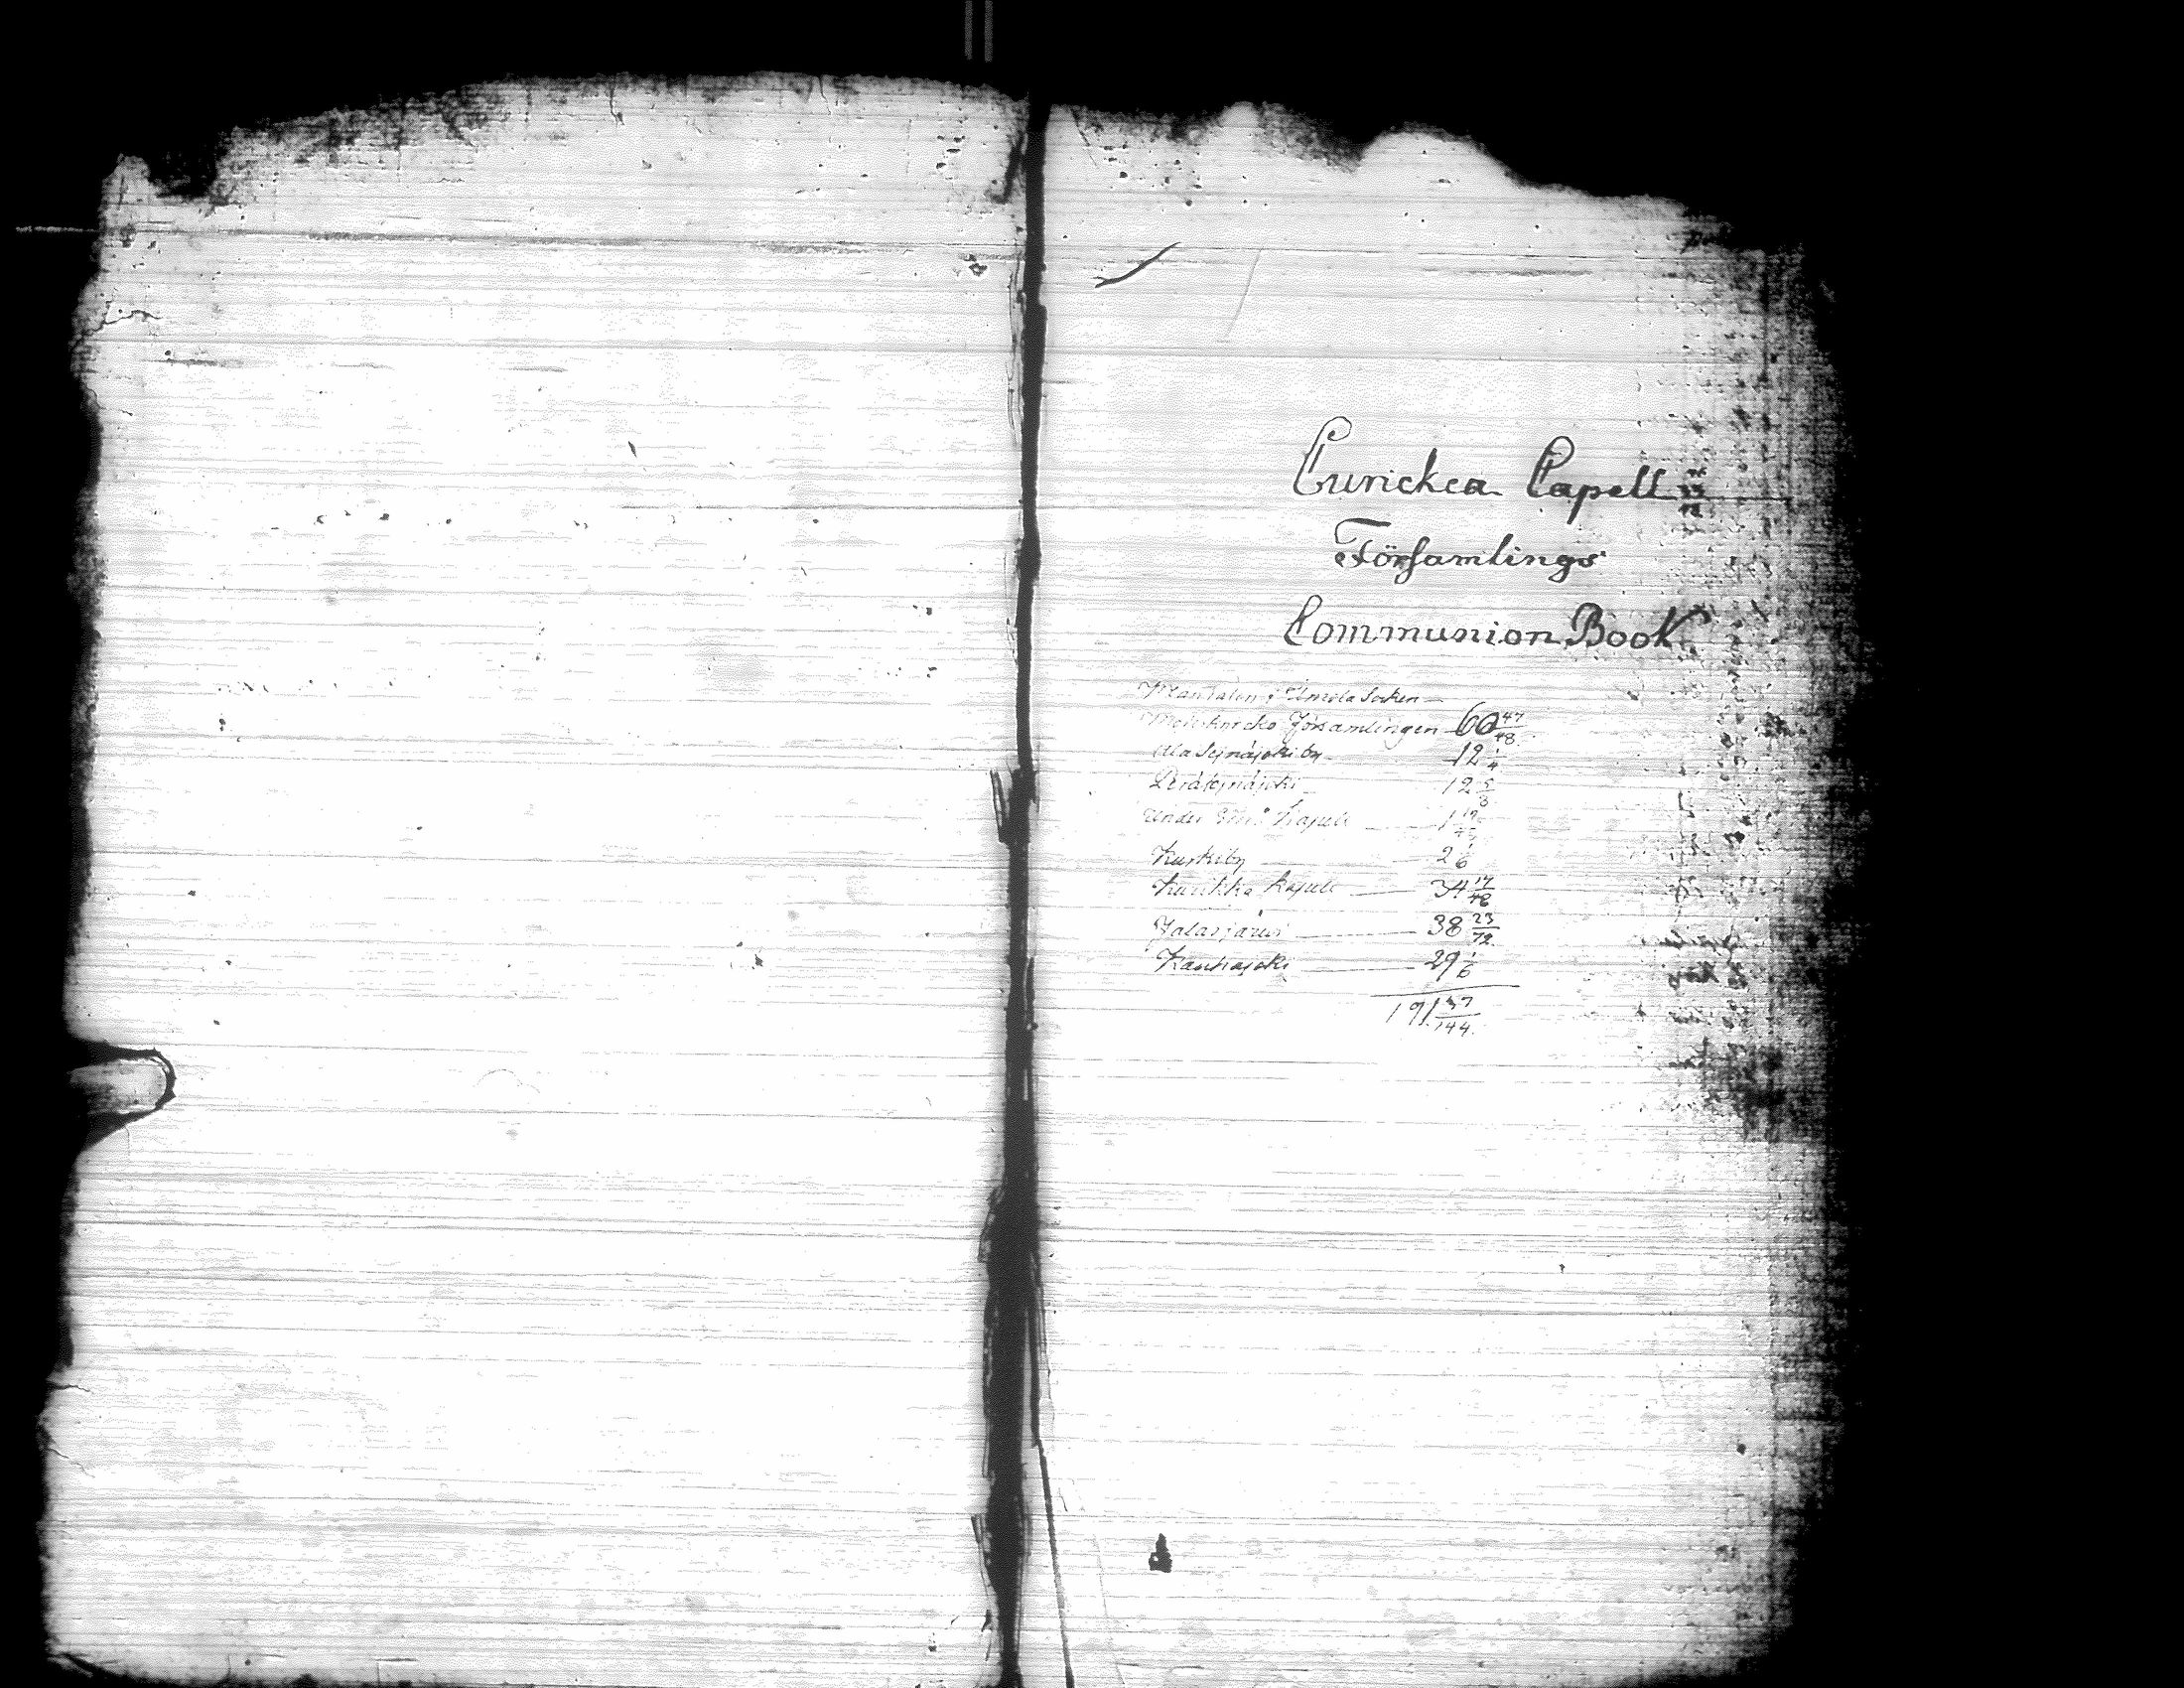 Curickca Capell
Församlings
Communion Book
Mantalen i Ilmola Socken
Moderkyrcko Församlingen 60 47/48
Ala Sejnäjoki by 12 1/4
Peräsejnäjoki 12 5/8
Under Kapell 1
Kurkiby 2 1/6
Kurikka Kapell 34 17/48
Jalasjärvi 38 23/72
Kauhajoki 29 1/6
191 37/144